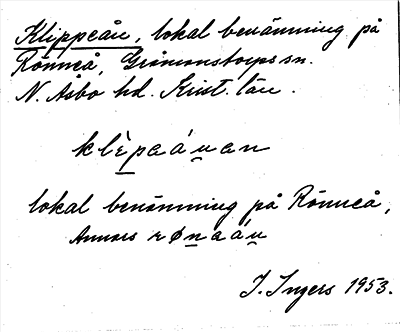 Klippeån, lokal benämning på
Rönneå, Gråmanstorps sn.
N. Åsbo hd. Krist. län.
klèpaáuan
lokal benämning på Rönneå,
Annars rønaáu
I. Ingers 1953.